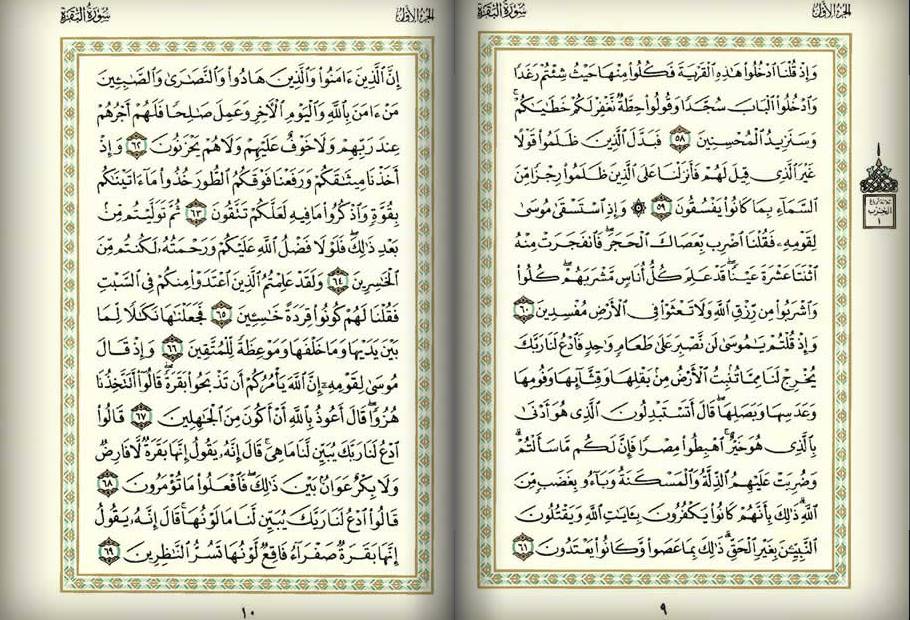 الجزء الأول
سورة البقرة
وَإِذْ قُلْنَا ٱدْخُلُوا۟ هَـٰذِهِ ٱلْقَرْيَةَ فَكُلُوا۟ مِنْهَا حَيْثُ شِئْتُمْ رَغَدًا
وَٱدْخُلُوا۟ ٱلْبَابَ سُجَّدًا وَقُولُوا۟ حِطَّةٌ نَّغْفِرْ لَكُمْ خَطَـٰيَـٰكُمْ ۚ
وَسَنَزِيدُ ٱلْمُحْسِنِينَ ٥٨ فَبَدَّلَ ٱلَّذِينَ ظَلَمُوا۟ قَوْلًا
غَيْرَ ٱلَّذِى قِيلَ لَهُمْ فَأَنزَلْنَا عَلَى ٱلَّذِينَ ظَلَمُوا۟ رِجْزًا مِّنَ
ٱلسَّمَآءِ بِمَا كَانُوا۟ يَفْسُقُونَ ٥٩ ۞ وَإِذِ ٱسْتَسْقَىٰ مُوسَىٰ
لِقَوْمِهِۦ فَقُلْنَا ٱضْرِب بِّعَصَاكَ ٱلْحَجَرَ ۖ فَٱنفَجَرَتْ مِنْهُ
ٱثْنَتَا عَشْرَةَ عَيْنًا ۖ قَدْ عَلِمَ كُلُّ أُنَاسٍ مَّشْرَبَهُمْ ۖ كُلُوا۟
وَٱشْرَبُوا۟ مِن رِّزْقِ ٱللَّهِ وَلَا تَعْثَوْا۟ فِى ٱلْأَرْضِ مُفْسِدِينَ ٦٠
وَإِذْ قُلْتُمْ يَـٰمُوسَىٰ لَن نَّصْبِرَ عَلَىٰ طَعَامٍ وَٰحِدٍ فَٱدْعُ لَنَا رَبَّكَ
يُخْرِجْ لَنَا مِمَّا تُنۢبِتُ ٱلْأَرْضُ مِنۢ بَقْلِهَا وَقِثَّآئِهَا وَفُومِهَا
وَعَدَسِهَا وَبَصَلِهَا ۖ قَالَ أَتَسْتَبْدِلُونَ ٱلَّذِى هُوَ أَدْنَىٰ
بِٱلَّذِى هُوَ خَيْرٌ ۚ ٱهْبِطُوا۟ مِصْرًا فَإِنَّ لَكُم مَّا سَأَلْتُمْ ۗ
وَضُرِبَتْ عَلَيْهِمُ ٱلذِّلَّةُ وَٱلْمَسْكَنَةُ وَبَآءُو بِغَضَبٍ مِّنَ
ٱللَّهِ ۗ ذَٰلِكَ بِأَنَّهُمْ كَانُوا۟ يَكْفُرُونَ بِـَٔايَـٰتِ ٱللَّهِ وَيَقْتُلُونَ
ٱلنَّبِيِّـۧنَ بِغَيْرِ ٱلْحَقِّ ۗ ذَٰلِكَ بِمَا عَصَوا۟ وَّكَانُوا۟ يَعْتَدُونَ ٦١
٩
الحزب
١
الجزء الأول
سورة البقرة
إِنَّ ٱلَّذِينَ ءَامَنُوا۟ وَٱلَّذِينَ هَادُوا۟ وَٱلنَّصَـٰرَىٰ وَٱلصَّـٰبِـِٔينَ
مَنْ ءَامَنَ بِٱللَّهِ وَٱلْيَوْمِ ٱلْـَٔاخِرِ وَعَمِلَ صَـٰلِحًا فَلَهُمْ أَجْرُهُمْ
عِندَ رَبِّهِمْ وَلَا خَوْفٌ عَلَيْهِمْ وَلَا هُمْ يَحْزَنُونَ ٦٢ وَإِذْ
أَخَذْنَا مِيثَـٰقَكُمْ وَرَفَعْنَا فَوْقَكُمُ ٱلطُّورَ خُذُوا۟ مَآ ءَاتَيْنَـٰكُم
بِقُوَّةٍ وَٱذْكُرُوا۟ مَا فِيهِ لَعَلَّكُمْ تَتَّقُونَ ٦٣ ثُمَّ تَوَلَّيْتُم مِّنۢ
بَعْدِ ذَٰلِكَ ۖ فَلَوْلَا فَضْلُ ٱللَّهِ عَلَيْكُمْ وَرَحْمَتُهُۥ لَكُنتُم مِّنَ
ٱلْخَـٰسِرِينَ ٦٤ وَلَقَدْ عَلِمْتُمُ ٱلَّذِينَ ٱعْتَدَوْا۟ مِنكُمْ فِى ٱلسَّبْتِ
فَقُلْنَا لَهُمْ كُونُوا۟ قِرَدَةً خَـٰسِـِٔينَ ٦٥ فَجَعَلْنَـٰهَا نَكَـٰلًا لِّمَا
بَيْنَ يَدَيْهَا وَمَا خَلْفَهَا وَمَوْعِظَةً لِّلْمُتَّقِينَ ٦٦ وَإِذْ قَالَ
مُوسَىٰ لِقَوْمِهِۦٓ إِنَّ ٱللَّهَ يَأْمُرُكُمْ أَن تَذْبَحُوا۟ بَقَرَةً ۖ قَالُوٓا۟ أَتَتَّخِذُنَا
هُزُوًا ۖ قَالَ أَعُوذُ بِٱللَّهِ أَنْ أَكُونَ مِنَ ٱلْجَـٰهِلِينَ ٦٧ قَالُوا۟
ٱدْعُ لَنَا رَبَّكَ يُبَيِّن لَّنَا مَا هِىَ ۚ قَالَ إِنَّهُۥ يَقُولُ إِنَّهَا بَقَرَةٌ لَّا فَارِضٌ
وَلَا بِكْرٌ عَوَانٌۢ بَيْنَ ذَٰلِكَ ۖ فَٱفْعَلُوا۟ مَا تُؤْمَرُونَ ٦٨
قَالُوا۟ ٱدْعُ لَنَا رَبَّكَ يُبَيِّن لَّنَا مَا لَوْنُهَا ۚ قَالَ إِنَّهُۥ يَقُولُ
إِنَّهَا بَقَرَةٌ صَفْرَآءُ فَاقِعٌ لَّوْنُهَا تَسُرُّ ٱلنَّـٰظِرِينَ ٦٩
١٠